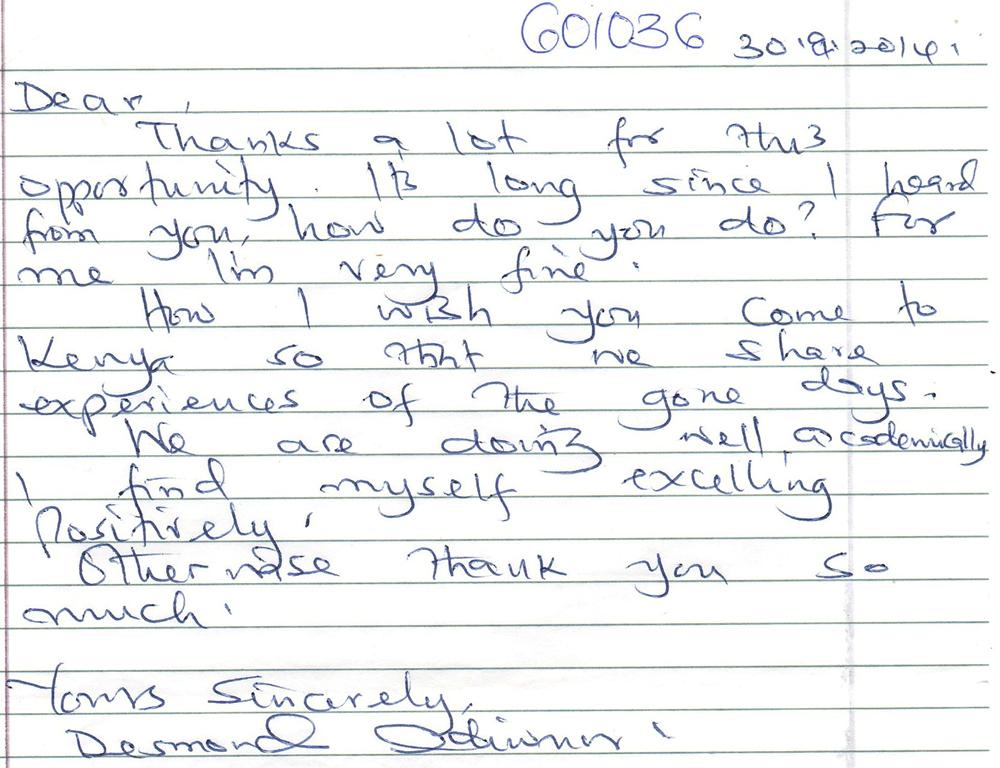 G01036 30.9.2014.
Dear,
Thanks a lot for this
opportunity. Its long since I heard
from you, how do you do? For
me I'm very fine.
How I wish you come to
Kenya so that we share
experiences of the gone days.
We are doing well, academically
I find myself excelling
Positively.
Otherwise thank you so
much.
Yours Sincerely,
Desmond